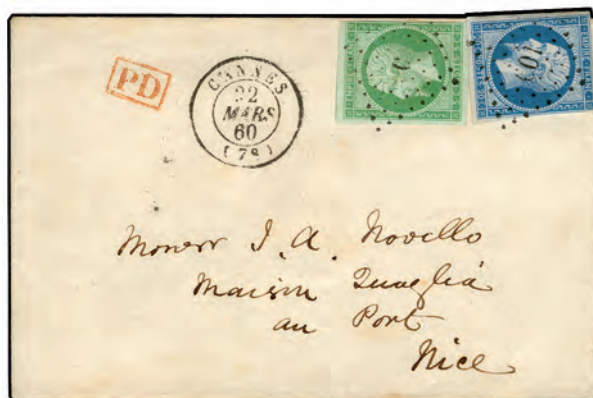 PD
CANNES
22
MARS
60
(78)
Monsr J. A. Novello
Maison Quaglia
au Port
Nice